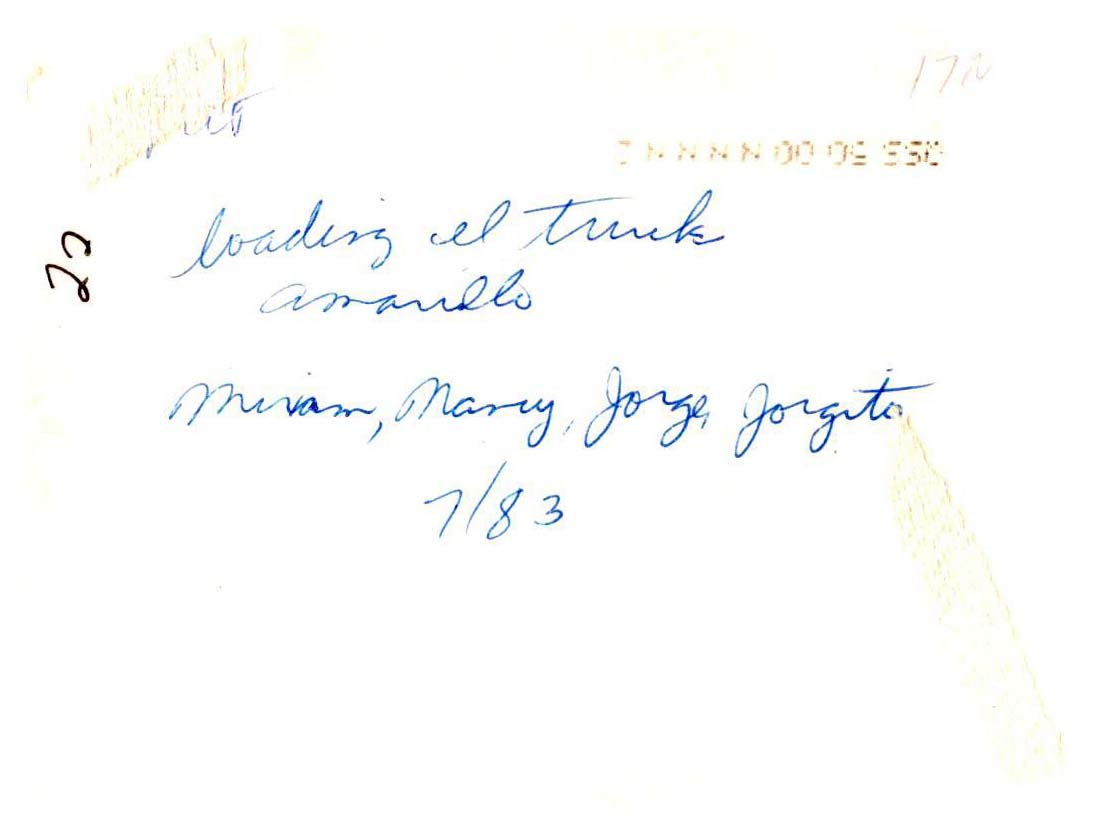 loading el truck
amarillo
Miriam, Nancy, Jorge, Jorgito
7/83
22